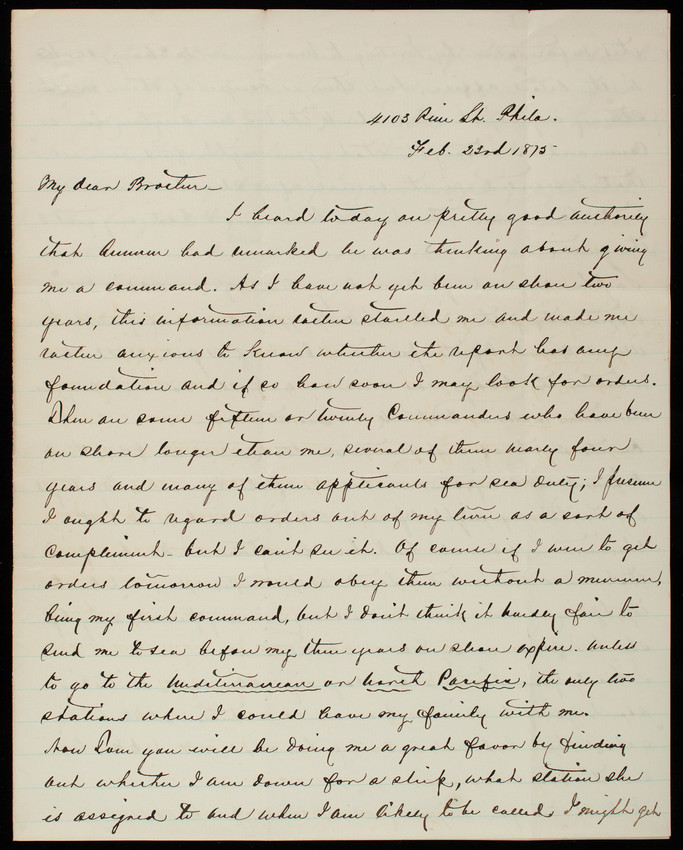 4103 Pine St. Phila.
Feb. 23rd 1875
My dear Brother—
I heard today on pretty good authority
that Ammen had remarked he was thinking about giving
me a command. As I have not yet been on shore two
years, this information rather startled me and made me
rather anxious to know whether the report has any
foundation and if so how soon I may look for orders.
There are some fifteen or twenty Commanders who have been
on shore longer than me, several of them nearly four
years and many of them applicants for sea duty; I presume
I ought to regard orders out of my turn as a sort of
compliment — but I can't see it. Of course if I were to get
orders tomorrow I would obey them without a murmur,
being my first command, but I don't think it hardly fair to
send me to sea before my three years on shore expire. Unless
to go to the Mediterranean or North Pacific, the only two
stations where I could have my family with me.
Now Tom you will be doing me a great favor by finding
out whether I am down for a ship, what station she
is assigned to and when I am likely to be called. I might get